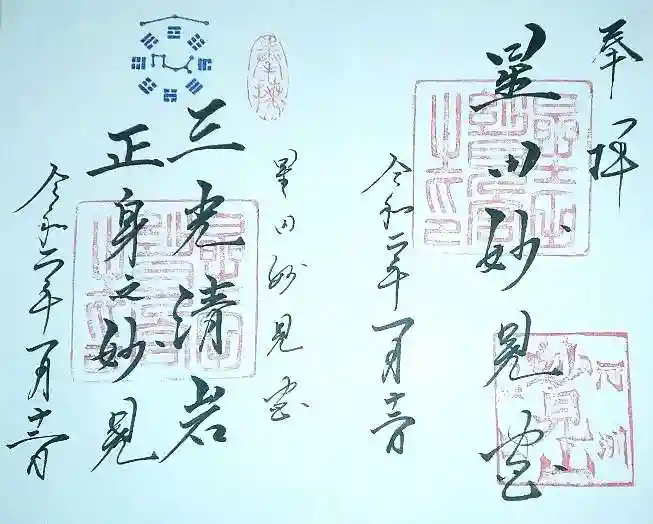 奉拝
星田妙見宮
令和二年一月十三日
奉拝
星田妙見宮
三光清岩
正身之妙見
令和二年一月十三日